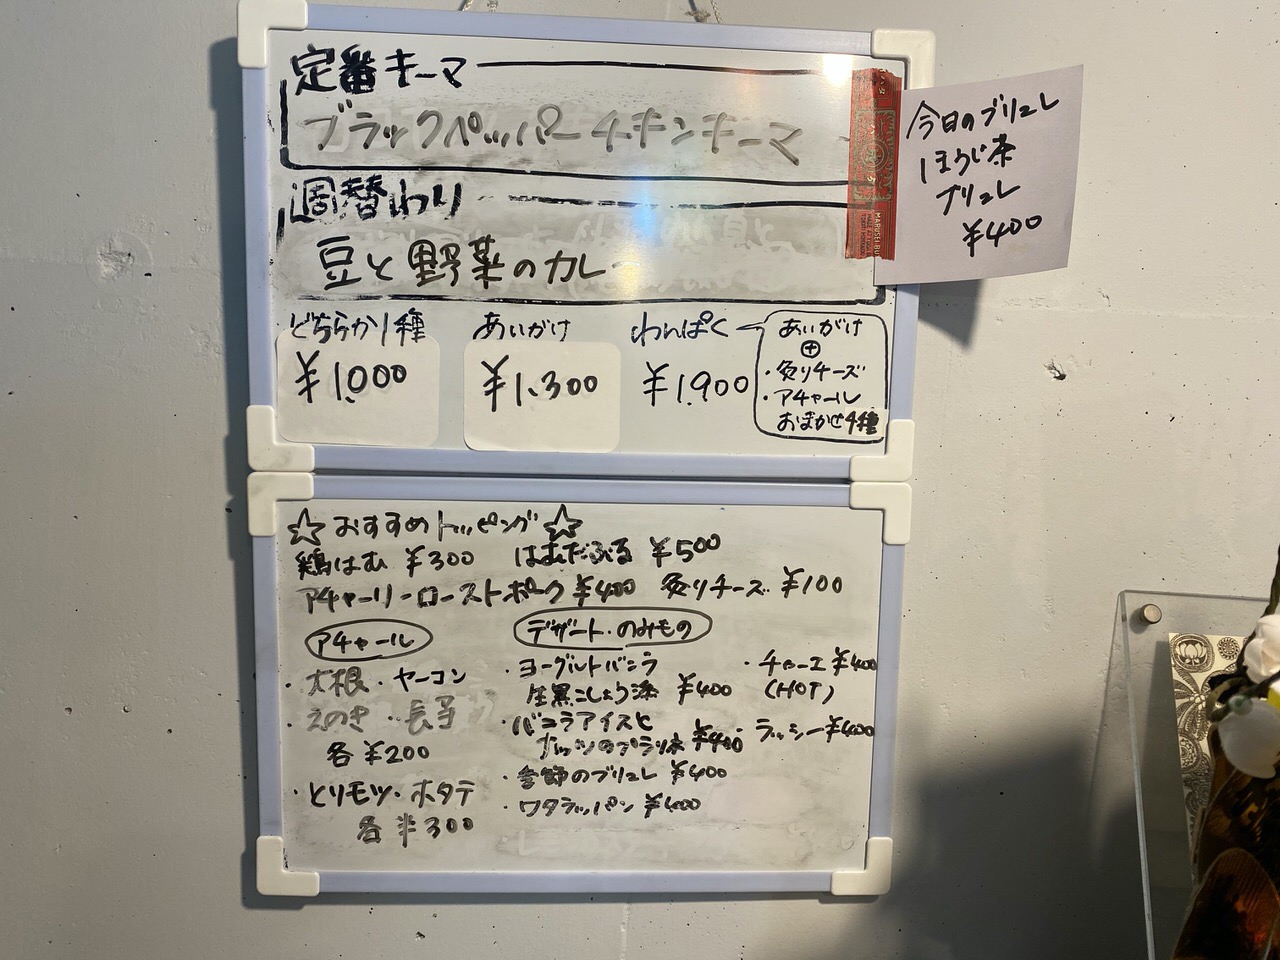 定番キーマ
ブラックペッパーチキンキーマ
週替わり
豆と野菜のカレー
どちらか1種
¥1.000
あいがけ
¥1.300
わんぱく
¥1.900
あいがけ
⊕
・炙りチーズ
・アチャール
おまかせ4種
今日のブリュレ
ほうじ茶
ブリュレ
¥400
MARUSEI-BU
☆おすすめトッピング☆
鶏はむ ¥300 はむだぶる ¥500
アチャーリーローストポーク ¥400 炙りチーズ ¥100
アチャール
・大根・ヤーコン
・えのき・長芋
各 ¥200
・とりモツ・ホタテ
各 ¥300
デザート・のみもの
・ヨーグルトバニラ
黒こしょう添 ¥400
・バニラアイスと
ナッツのプラリネ ¥400
・季節のブリュレ ¥400
・ワタラッパン ¥400
・チャーエ ¥400
(HOT)
・ラッシー ¥400